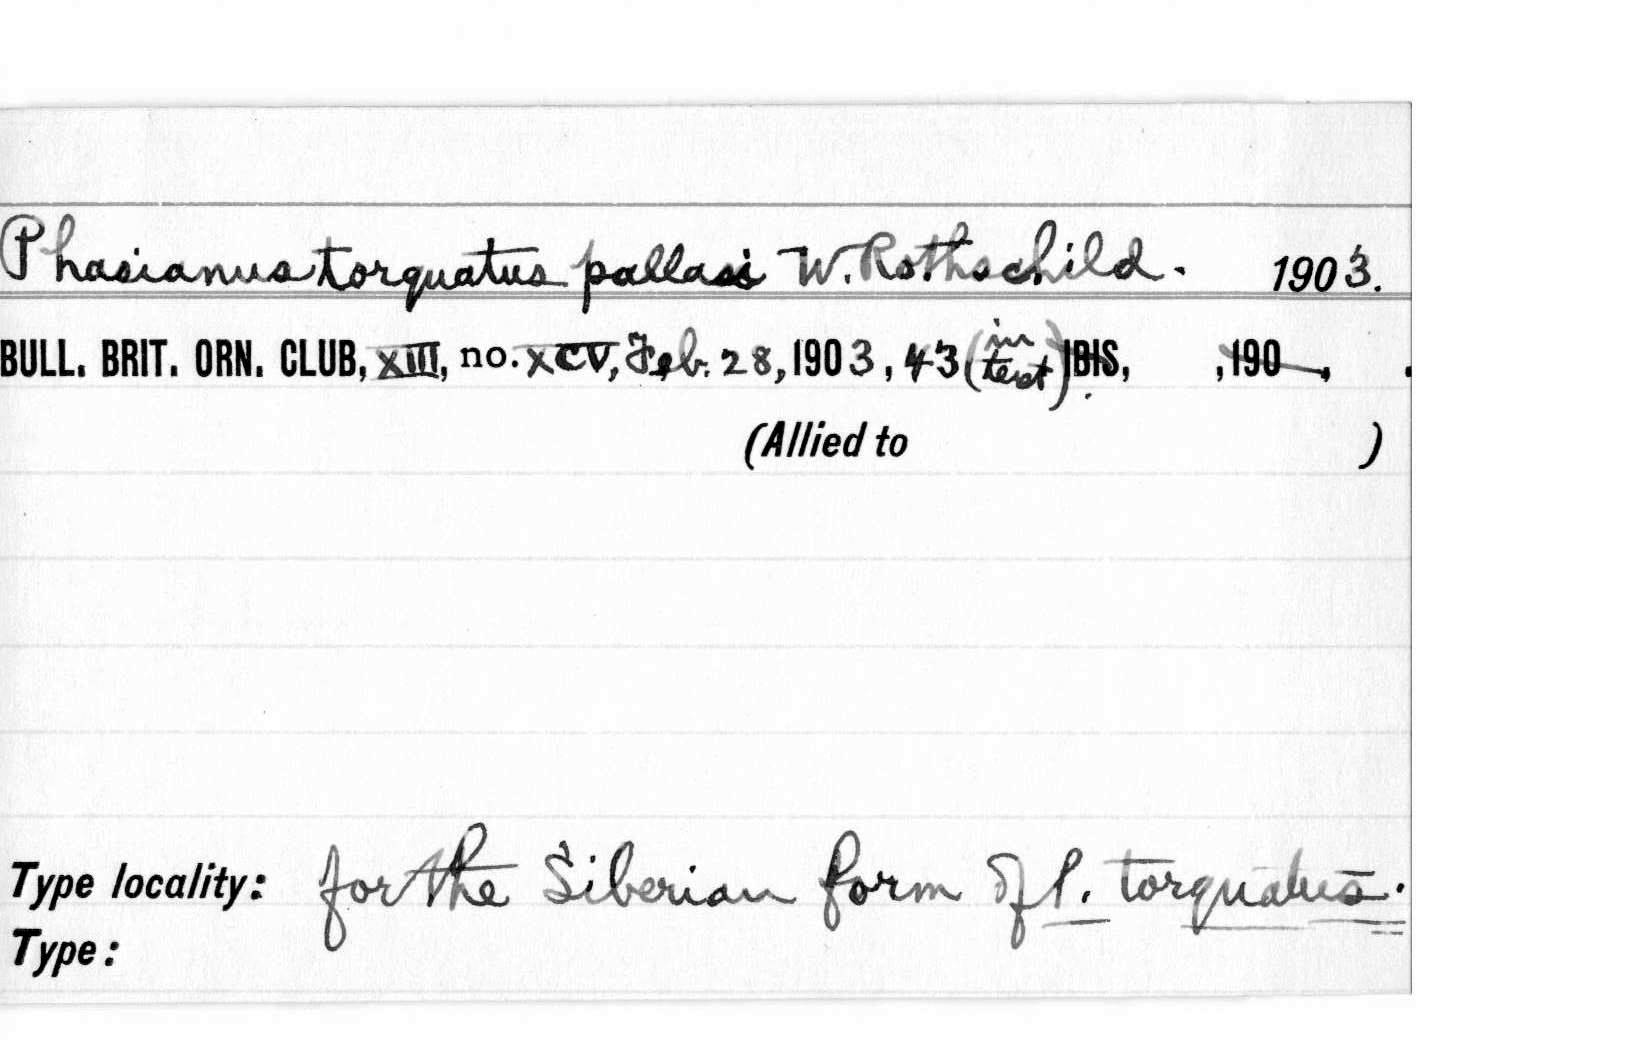 Phasianus torquatus pallasi W. Rothschild. 1903.
BULL. BRIT. ORN. CLUB, XIII, no. XCV, Feb. 28, 1903, 43 (in text). IBIS, , 190 , .
(Allied to )
Type locality: for the Siberian form of P. torquatus.
Type: